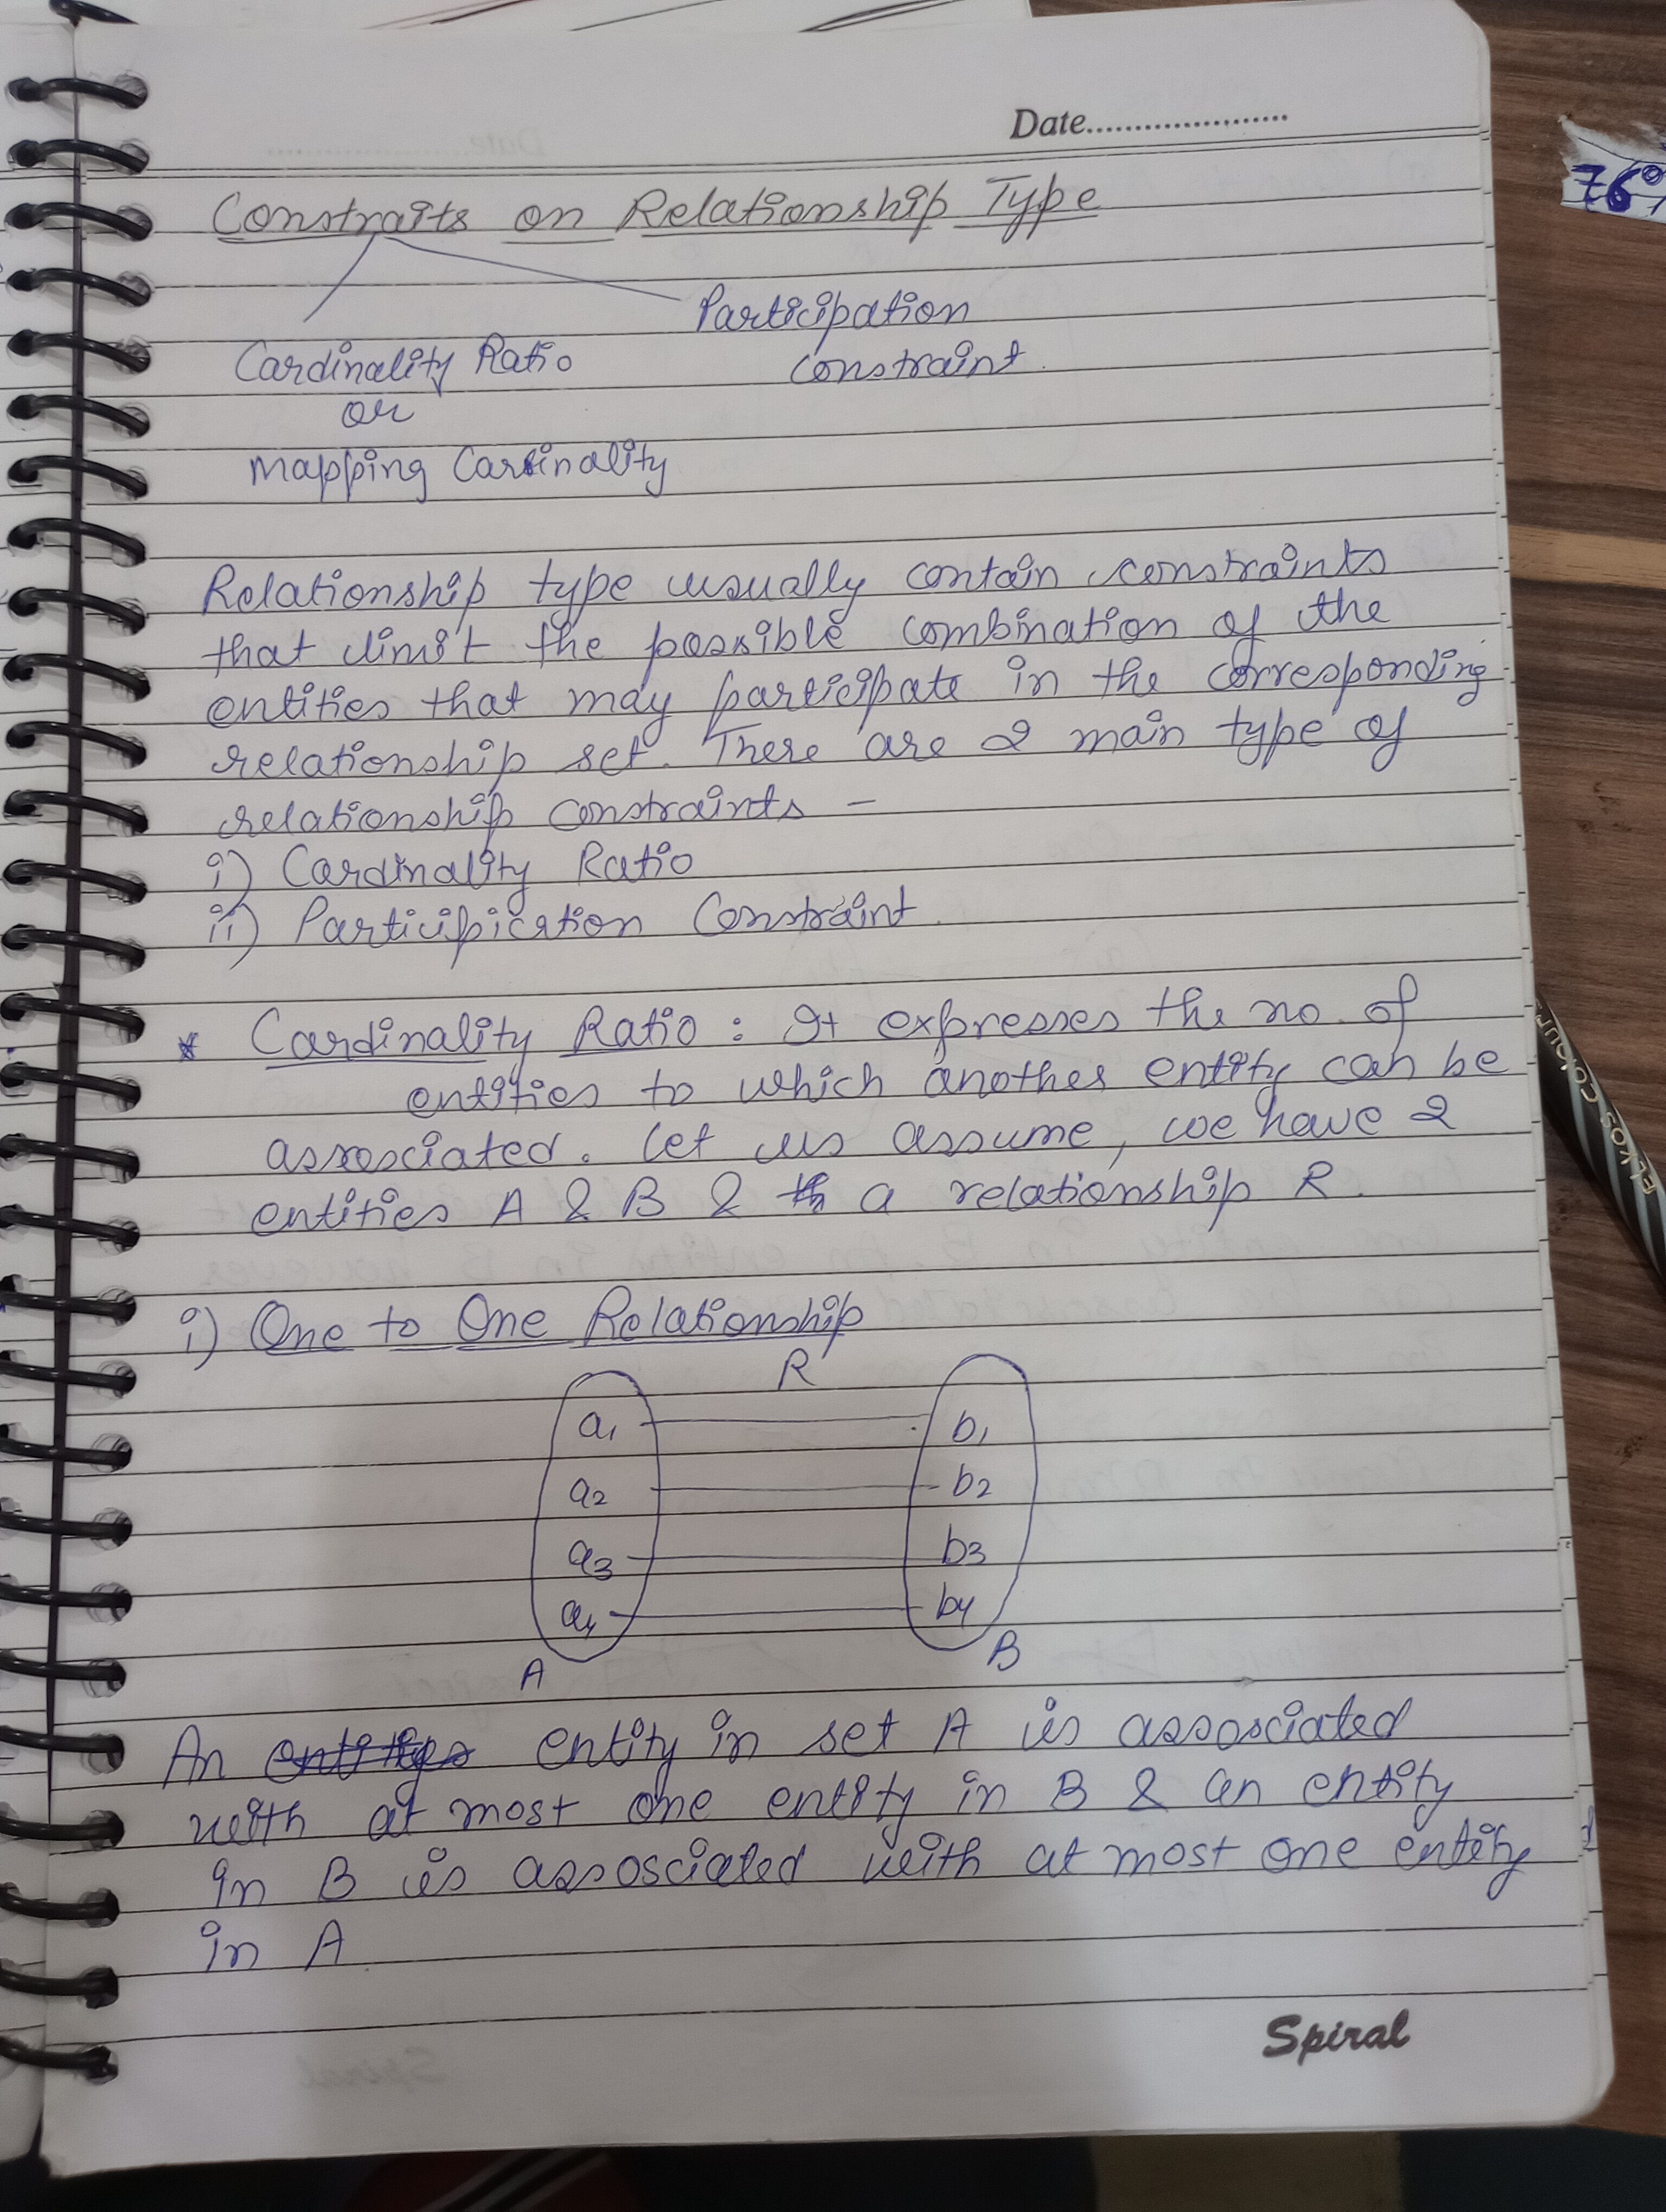 Date
Constraits on Relationship Type
Participation
constraint.
Cardinality Ratio
or
Mapping Cardinality
Relationship type usually contain constraints
that limit the possible combination of the
entities that may participate in the corresponding
relationship set. There are 2 main type of
relationship constraints -
i) Cardinality Ratio
ii) Participication Constraint.
* Cardinality Ratio : It expresses the no. of
entities to which another entity can be
assosciated. Let us assume, we have 2
entities A & B & a relationship R.
i) One to One Relationship
R
a1 b1
a2 b2
a3 b3
a4 b4
A B
An entity in set A is assosciated
with at most one entity in B & an entity
in B is assosciated with at most one entity
in A.
Spiral
76%
COLOURS